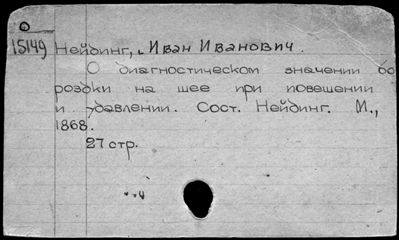 15149 Нейдинг, Иван Иванович.
О диагностическом значении бо
роздки на шее при повешении
и удавлении. Сост. Нейдинг. М.,
1868.
27 стр.